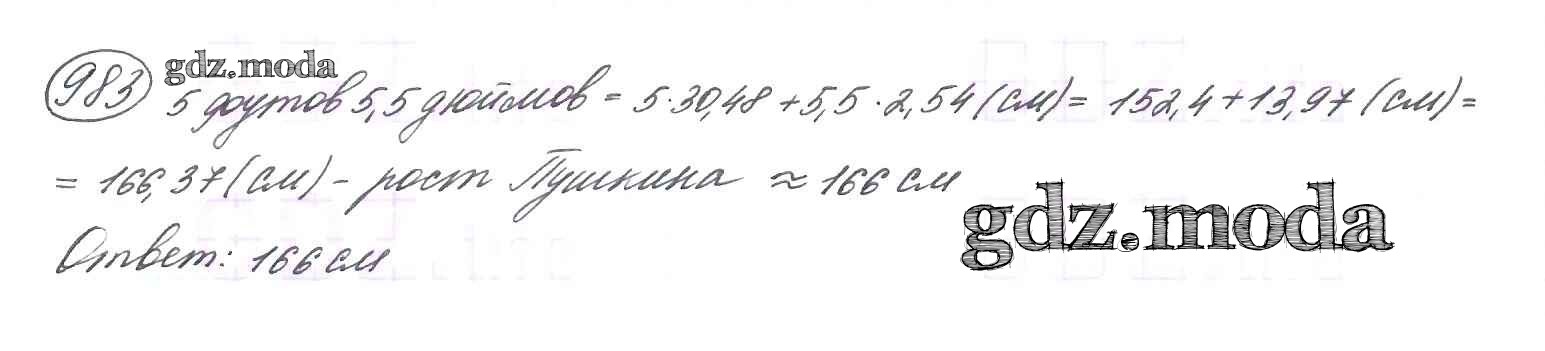 983 gdz.moda
5 футов 5,5 дюймов = 5·30,48 + 5,5·2,54 (см) = 152,4 + 13,97 (см) =
= 166,37 (см) - рост Пушкина ≈ 166 см
gdz.moda
Ответ: 166 см